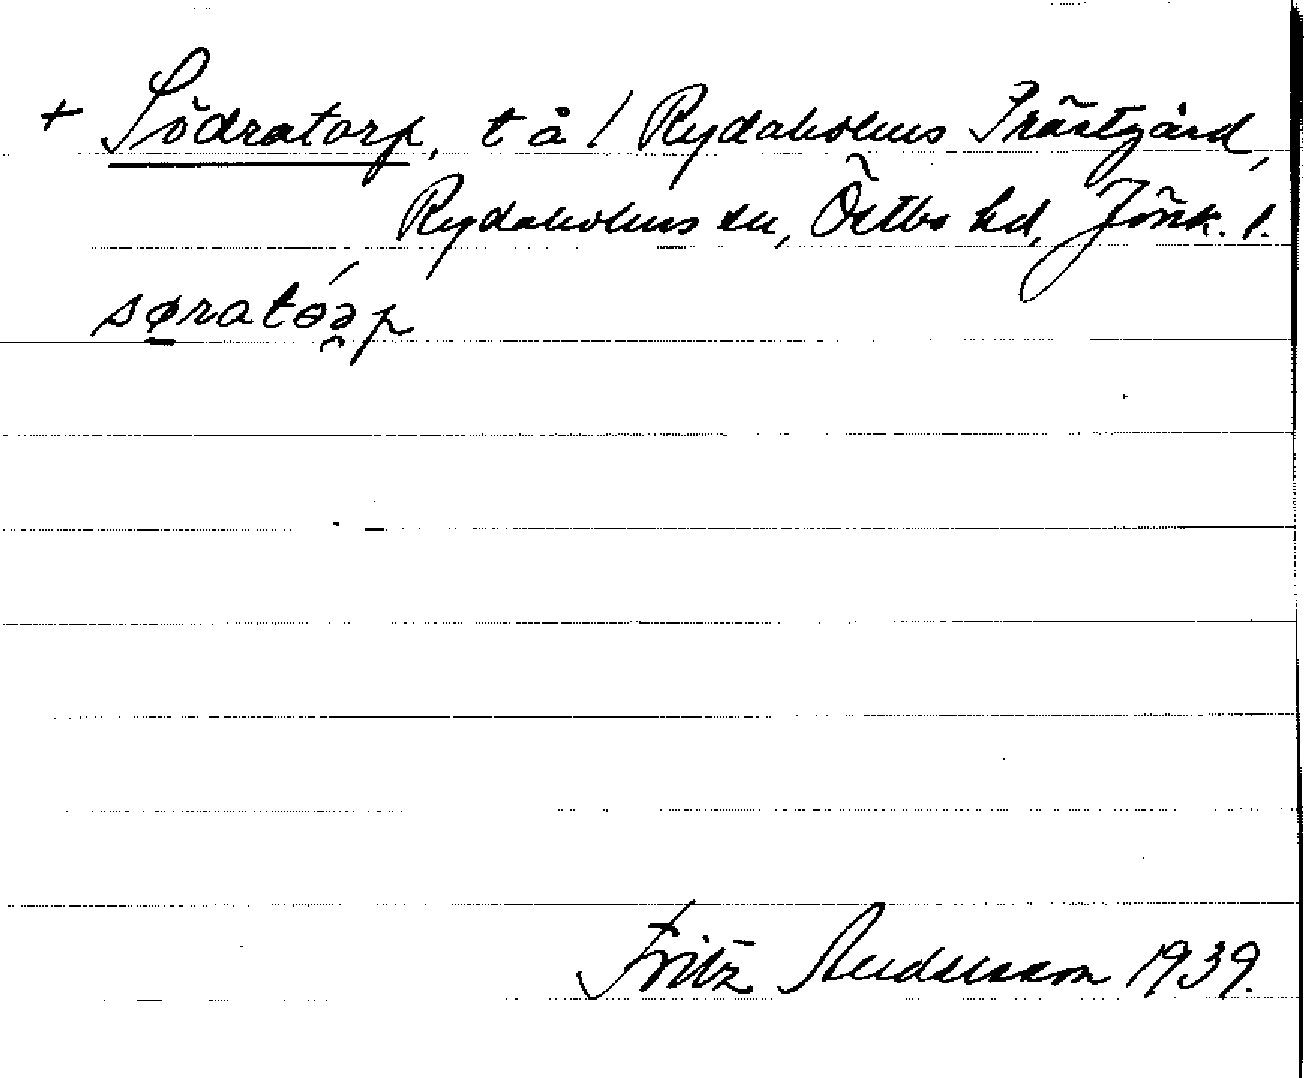 + Södratorp, t å / Rydaholms Prästgård,
Rydaholms sn, Östbo hd, Jönk. l.
søratóə̯p
Fritz Andersson 1939.